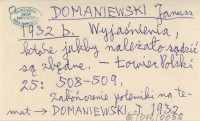 DOMANIEWSKI Janusz
1932 b. Wyjaśnienia,
które jakby należało sądzić
są zbędne. – Łowiec Polski
25: 508-509.
Zakończenie polemiki na te-
mat → DOMANIEWSKI J. 1932